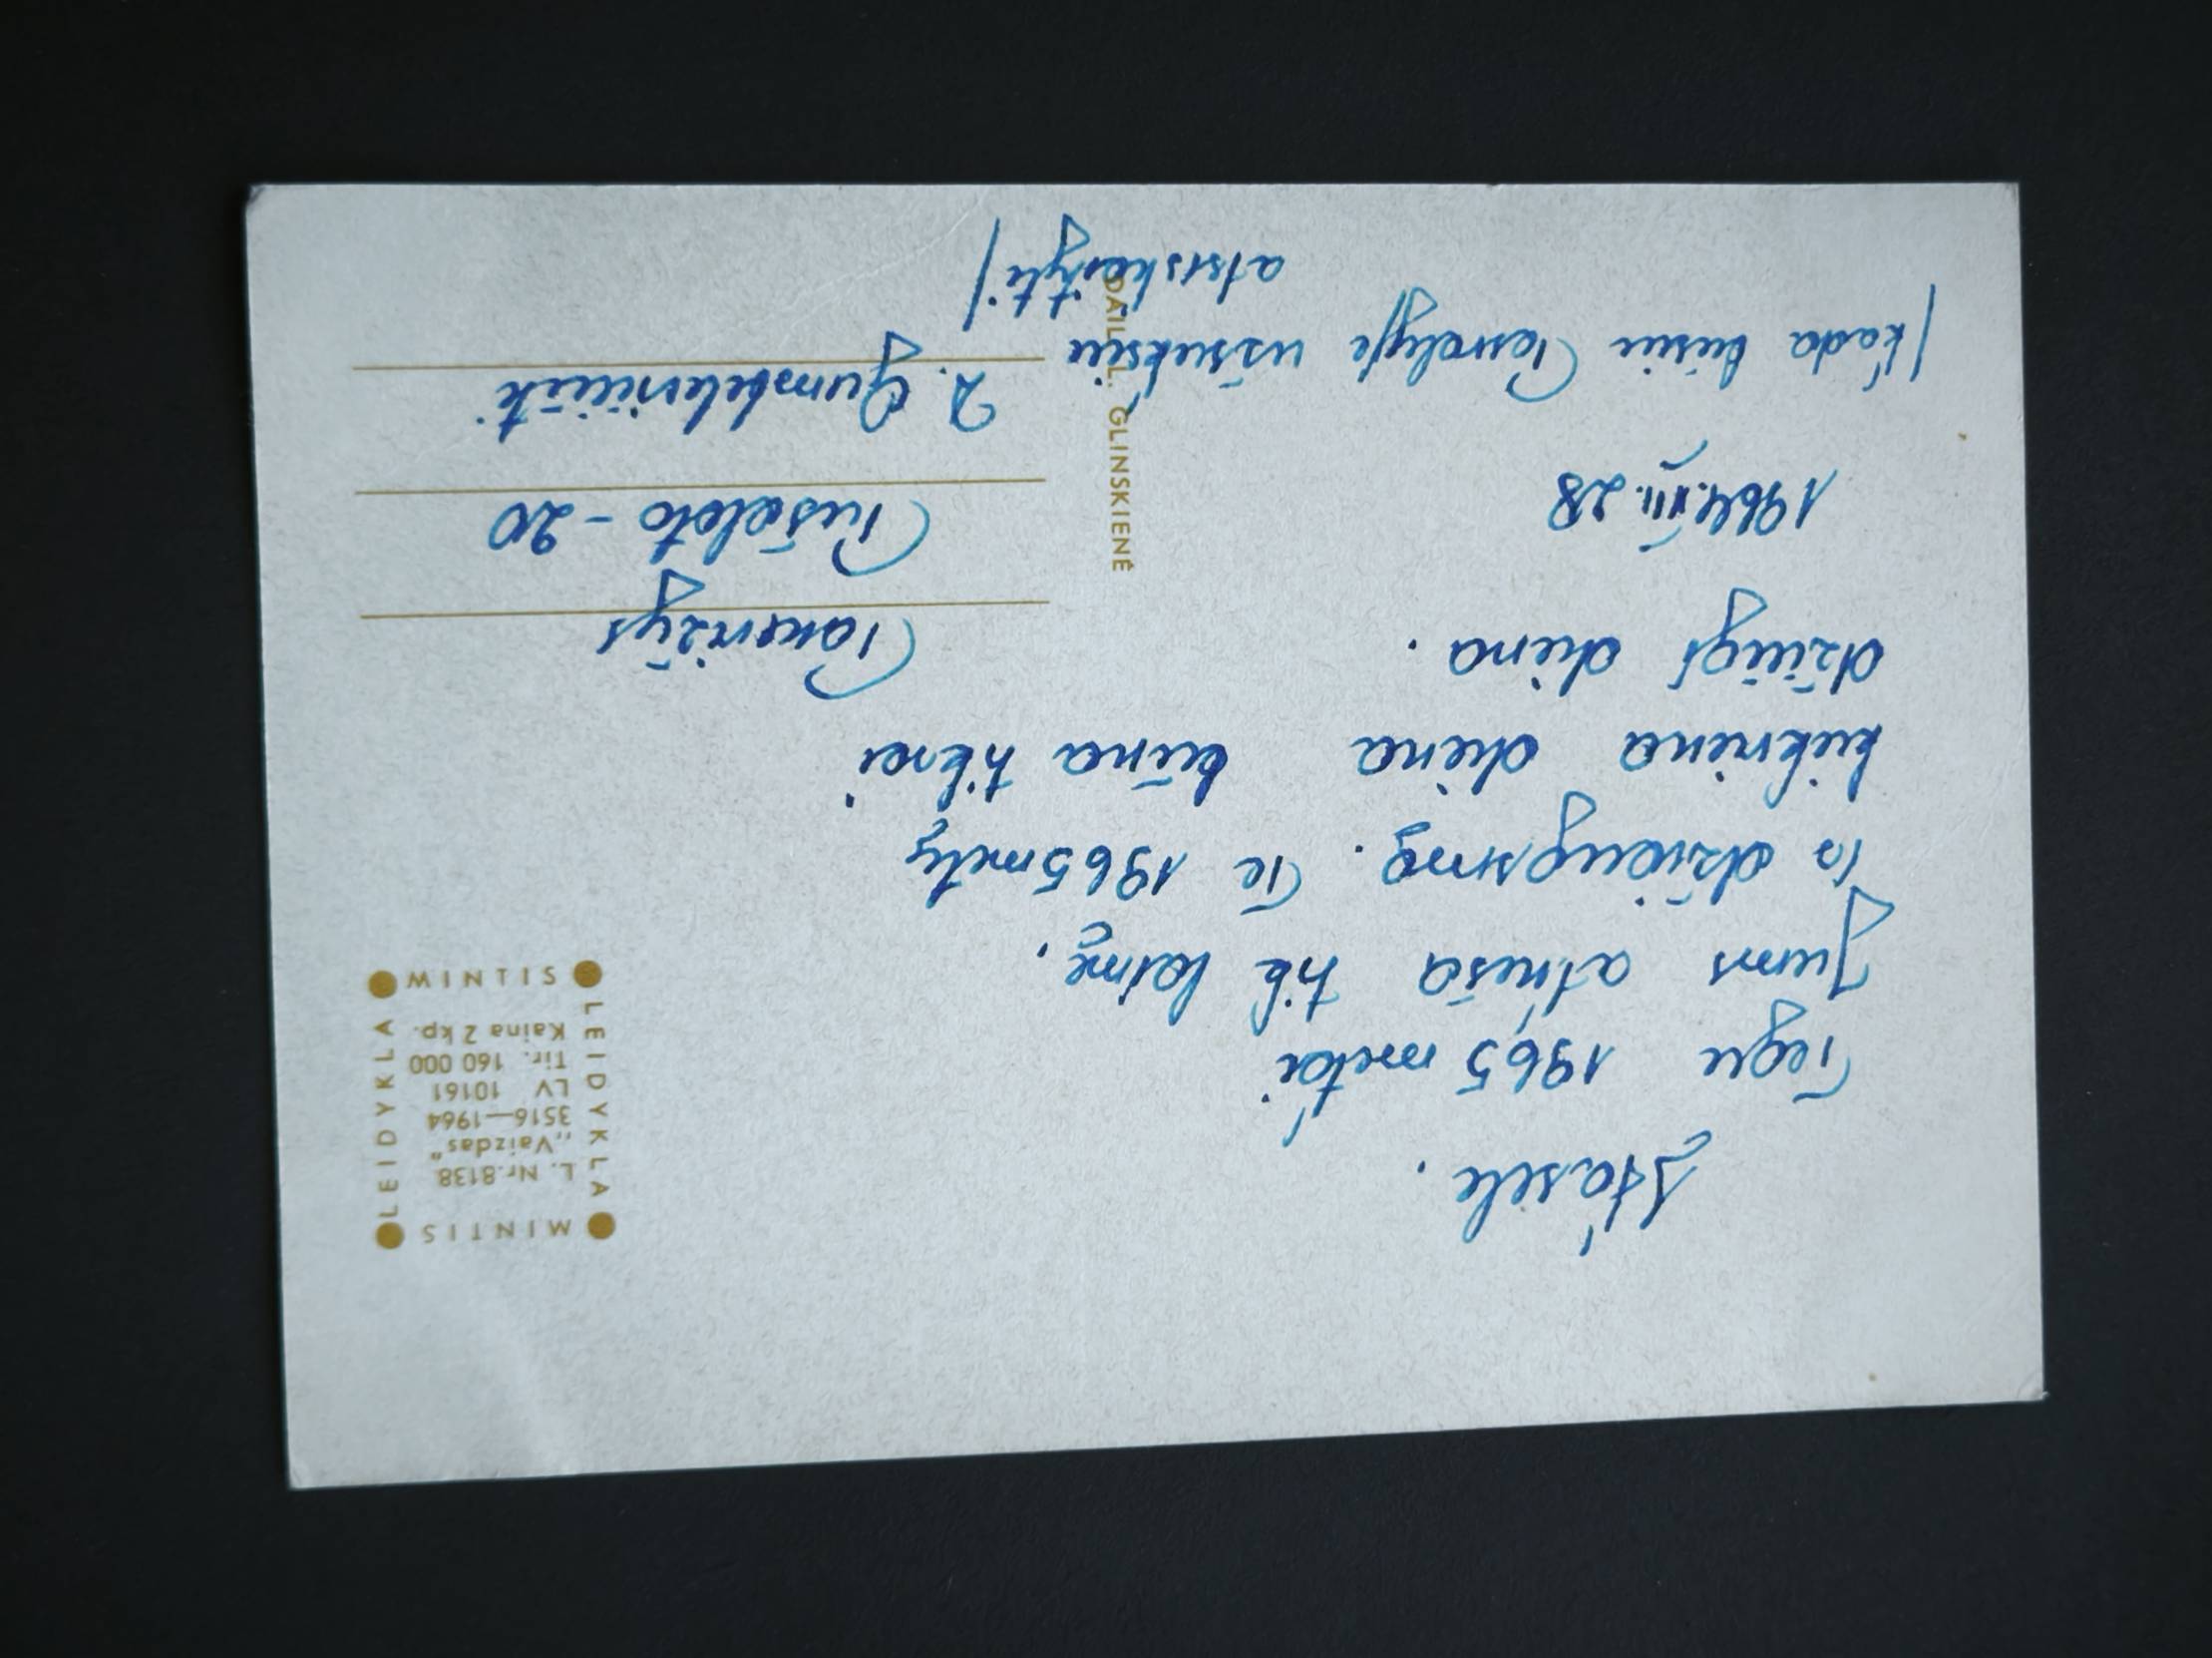 Stasele.
Tegu 1965 metai
Jums atneša tik laimę,
džiaugsmą. Te 1965 metų
kiekviena diena būna tikrai
džiugi diena.
1964.XII.28
/kada būsiu Pasvalyje užsuksiu
atsiskaityti/
MINTIS
LEIDYKLA
L. Nr. 8138
„Vaizdas“
3516—1964
LV 10161
Tir. 160 000
Kaina 2 kp.
LEIDYKLA
MINTIS
Panevėžys
Pušaloto - 20
DAIL. L. GLINSKIENĖ